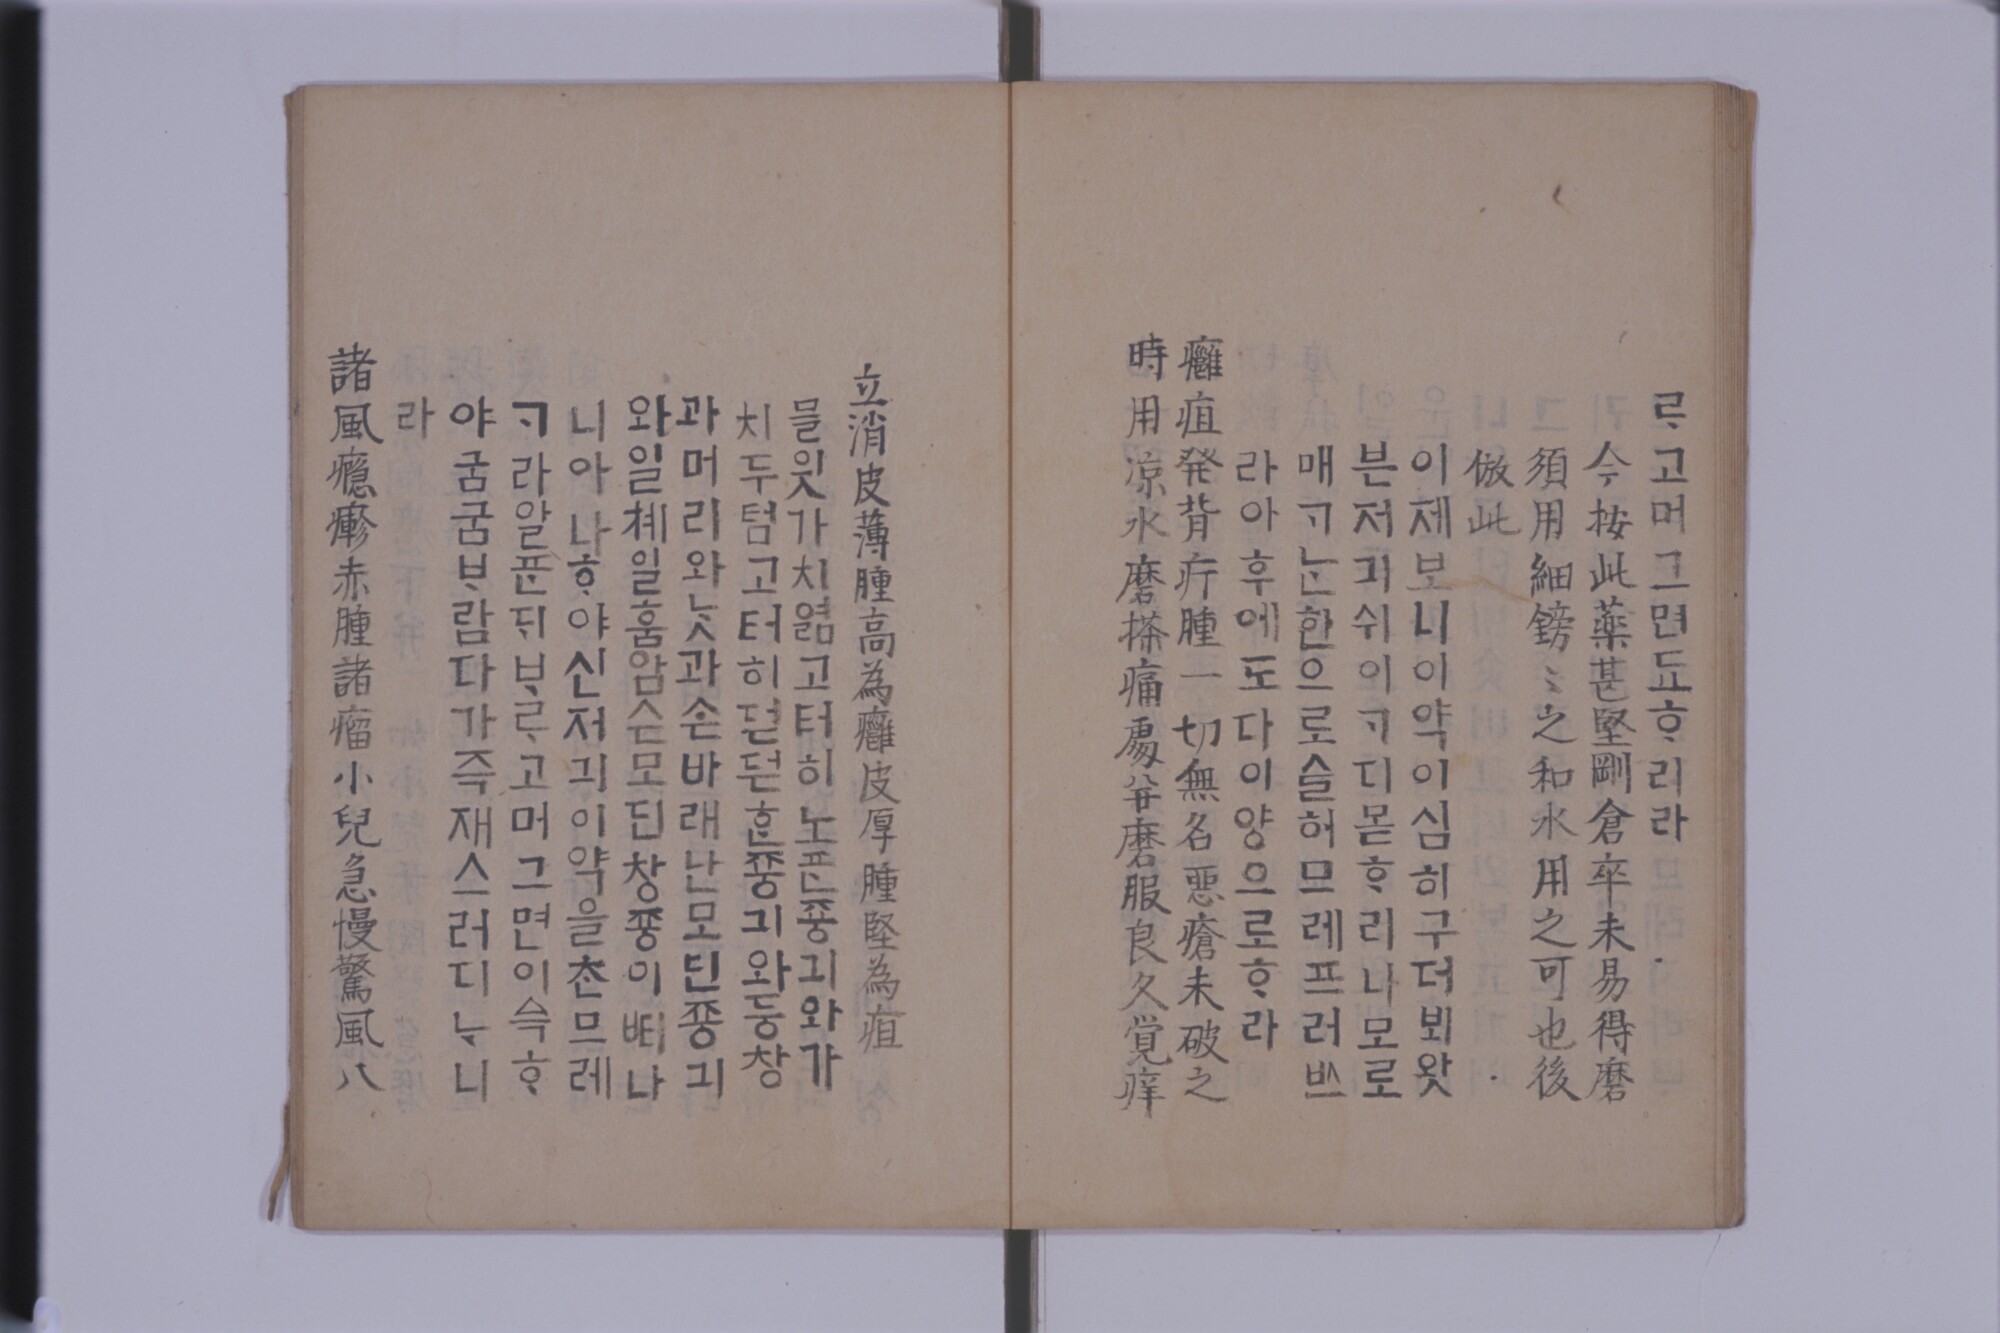 ᄅᆞ고머그면됴ᄒᆞ리라
今按此薬甚堅剛倉卒未易得磨
須用細鎊〻之和水用之可也後
倣此
이제보니이약이심히구더뵈왓
븐저긔쉬이ᄀᆞ디몯ᄒᆞ리니모로
매ᄀᆞᄂᆞᆫ한으로슬허므레프러ᄡᅳ
라아후에도다이양으로ᄒᆞ라
癰疽発背疔腫一切無名悪瘡未破之
時用凉水磨搽痛處并磨服良久覚痒
立消皮薄腫高為癰皮厚腫堅為疽
믈읫가치엷고터히노ᄑᆞᆫ죵긔와가
치두텁고터히ᄃᆞᆫᄃᆞᆫᄒᆞᆫ죵긔와등창
과머리와ᄂᆞᆺ과손바래난모딘죵긔
와일쳬일훔암슨모딘창죵이ᄣᅥ디나
니아나ᄒᆞ야신저긔이약을ᄎᆞᆫ므레
ᄀᆞ라알ᄑᆞᆫᄃᆡᄇᆞᄅᆞ고머그면이슥ᄒᆞ
야굼굼ᄇᆞ람다가즉재스러디ᄂᆞ니
라
諸風癮瘮赤腫諸瘤小兒急慢驚風八